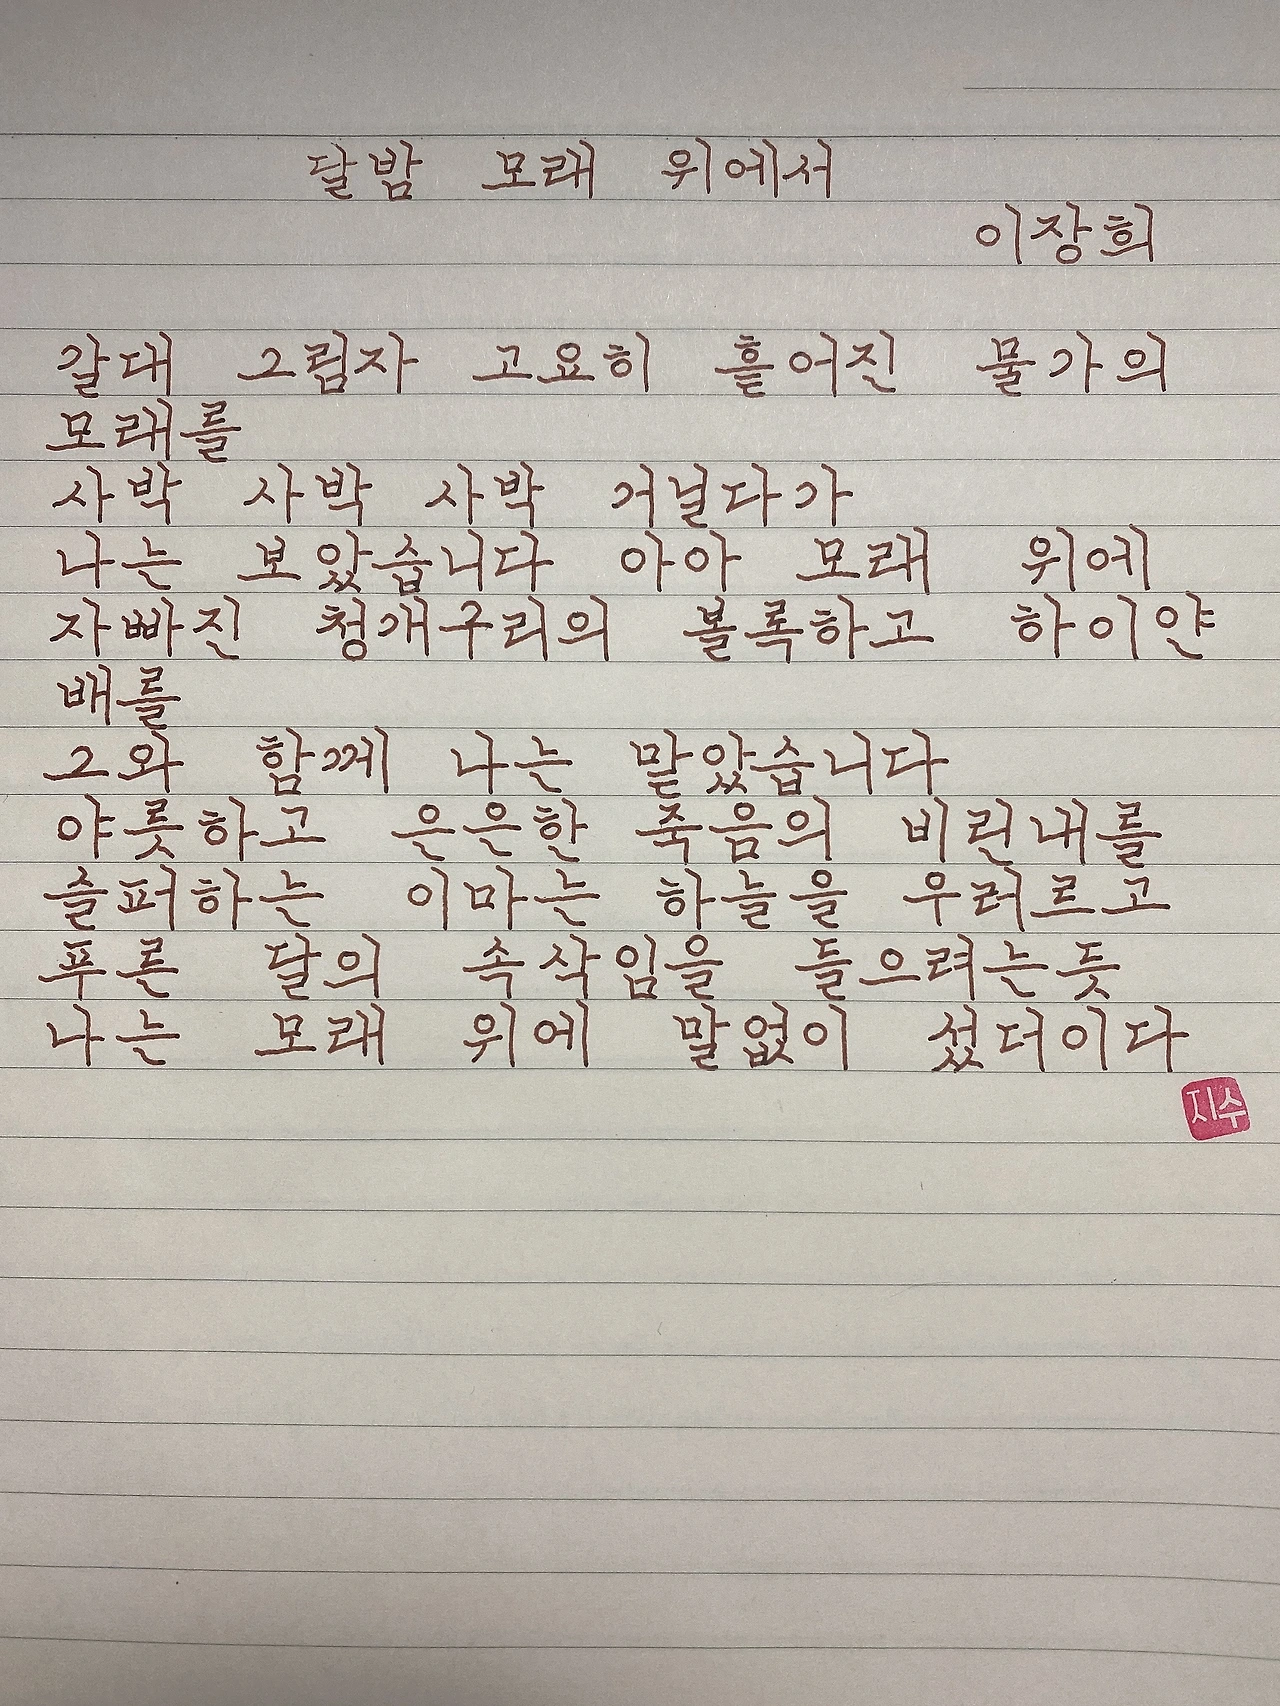 달밤 모래 위에서
이장희
갈대 그림자 고요히 흩어진 물가의
모래를
사박 사박 사박 거닐다가
나는 보았습니다 아아 모래 위에
자빠진 청개구리의 볼록하고 하이얀
배를
그와 함께 나는 맡았습니다
야릇하고 은은한 죽음의 비린내를
슬퍼하는 이마는 하늘을 우러르고
푸른 달의 속삭임을 들으려는듯
나는 모래 위에 말없이 섰더이다
지수